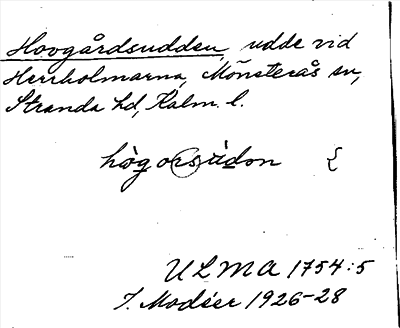 Hovgårdsudden, udde vid
Herrholmarna, Mönsterås sn,
Stranda hd, Kalm. l.
hògorsúdon {
ULMA 1754:5
I. Modéer 1926-28